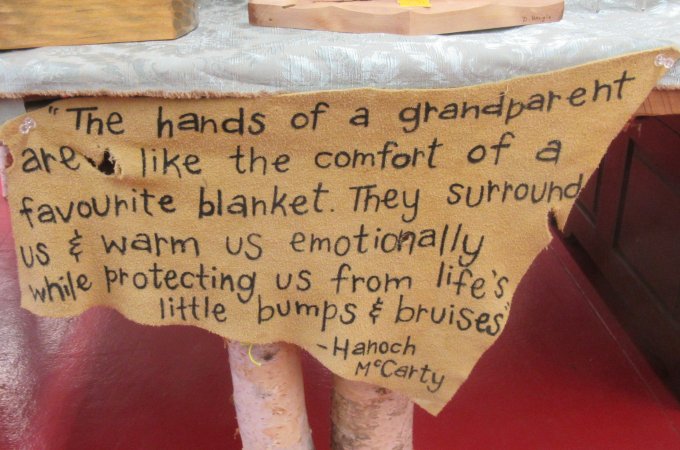 "The hands of a grandparent
are like the comfort of a
favourite blanket. They surround
us & warm us emotionally
while protecting us from life's
little bumps & bruises"
-Hanoch
McCarty